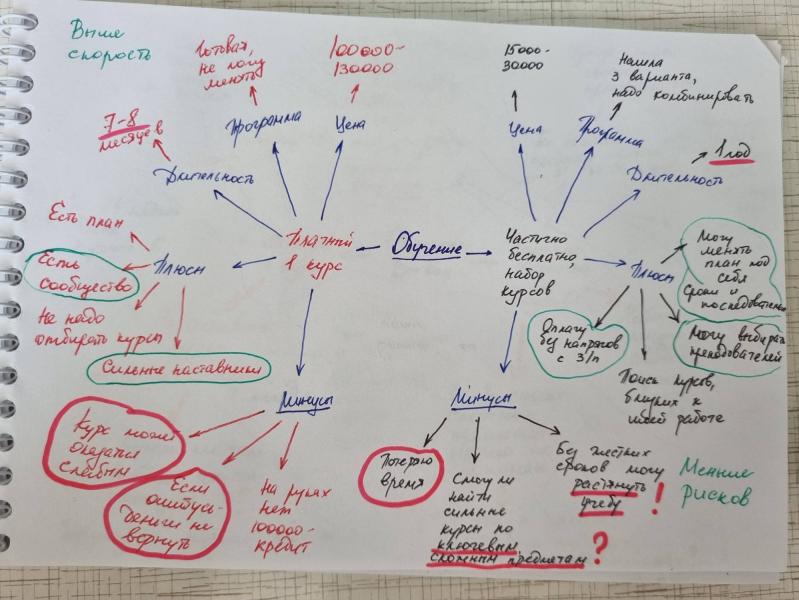 Выше
скорость
Готовая,
не могу
менять
100000-
130000
15000-
30000
Нашла
3 варианта,
надо комбинировать
7-8
месяцев
Программа
Цена
Цена
Программа
1 год
Длительность
Длительность
Есть план
Платный
1 курс
Обучение
Частично
бесплатно,
набор
курсов
Плюсы
Плюсы
Могу
менять
план под
себя
сроки и
Есть
сообщество
Не надо
отбирать курсы
Сильные наставники
Оплачу
без напрягов
с З/п
Могу выбирать
преподавателей
Поиск курсов,
близких к
моей работе
Минусы
Минусы
Курс может
оказаться
слабым
Если
ошибусь-
деньги не
вернуть
На руках
нет
100000-
кредит
Потеряю
время
Смогу ли
найти
сильные
курсы по
ключевым,
сложным предметам ?
Без жестких
сроков могу
растянуть
учебу !
Меньше
рисков